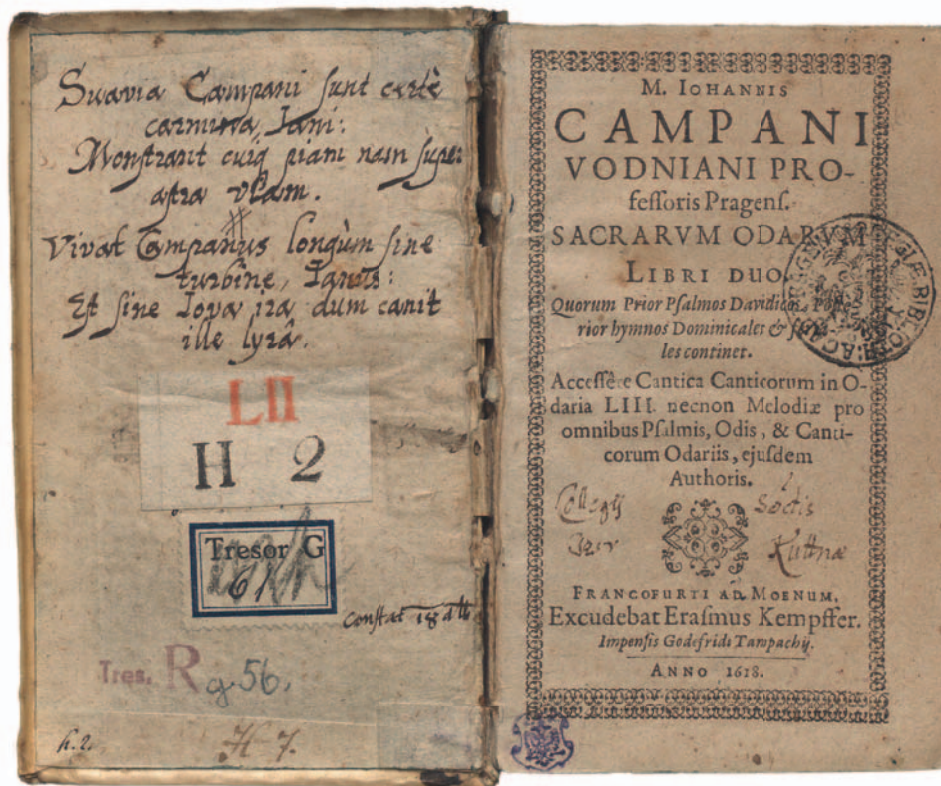 Suavia Campani sunt certè
carmina, Jani:
Monstrant cuiq piam nam super
astra viam.
Vivat Campanus longùm sine
turbine, Janus:
Et sine Iova ira dum canit
ille lyrâ.
LII
H 2
Tresor G
61
constat 18 alb
Tres. R g. 56.
h. 2. H 7.
M. IOHANNIS
CAMPANI
VODNIANI PRO-
fessoris Pragens.
SACRARVM ODARVM
LIBRI DUO.
Quorum Prior Psalmos Davidicos,
rior hymnos Dominicales &
les continet.
Accessêre Cantica Canticorum in O-
daria LIII. necnon Melodiæ pro
omnibus Psalmis, Odis, & Canti-
corum Odariis, ejusdem
Authoris.
Collegij Soctis
Kuttnæ
FRANCOFURTI AD MOENUM,
Excudebat Erasmus Kempffer.
Impensis Godefridi Tampachij.
ANNO 1618.